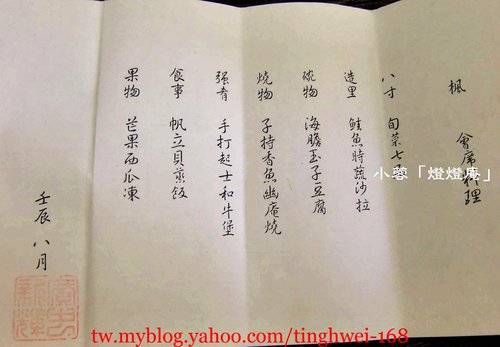 楓 會席料理
八寸 旬菜七
造里 鮭魚時蔬沙拉
碗物 海膽玉子豆腐
燒物 子持香魚幽庵燒
强肴 手打起士和牛堡
食事 帆立貝煎飯
果物 芒果西瓜凍
壬辰 八月
小蓉「燈燈庵」
tw.myblog.yahoo.com/tinghwei-168